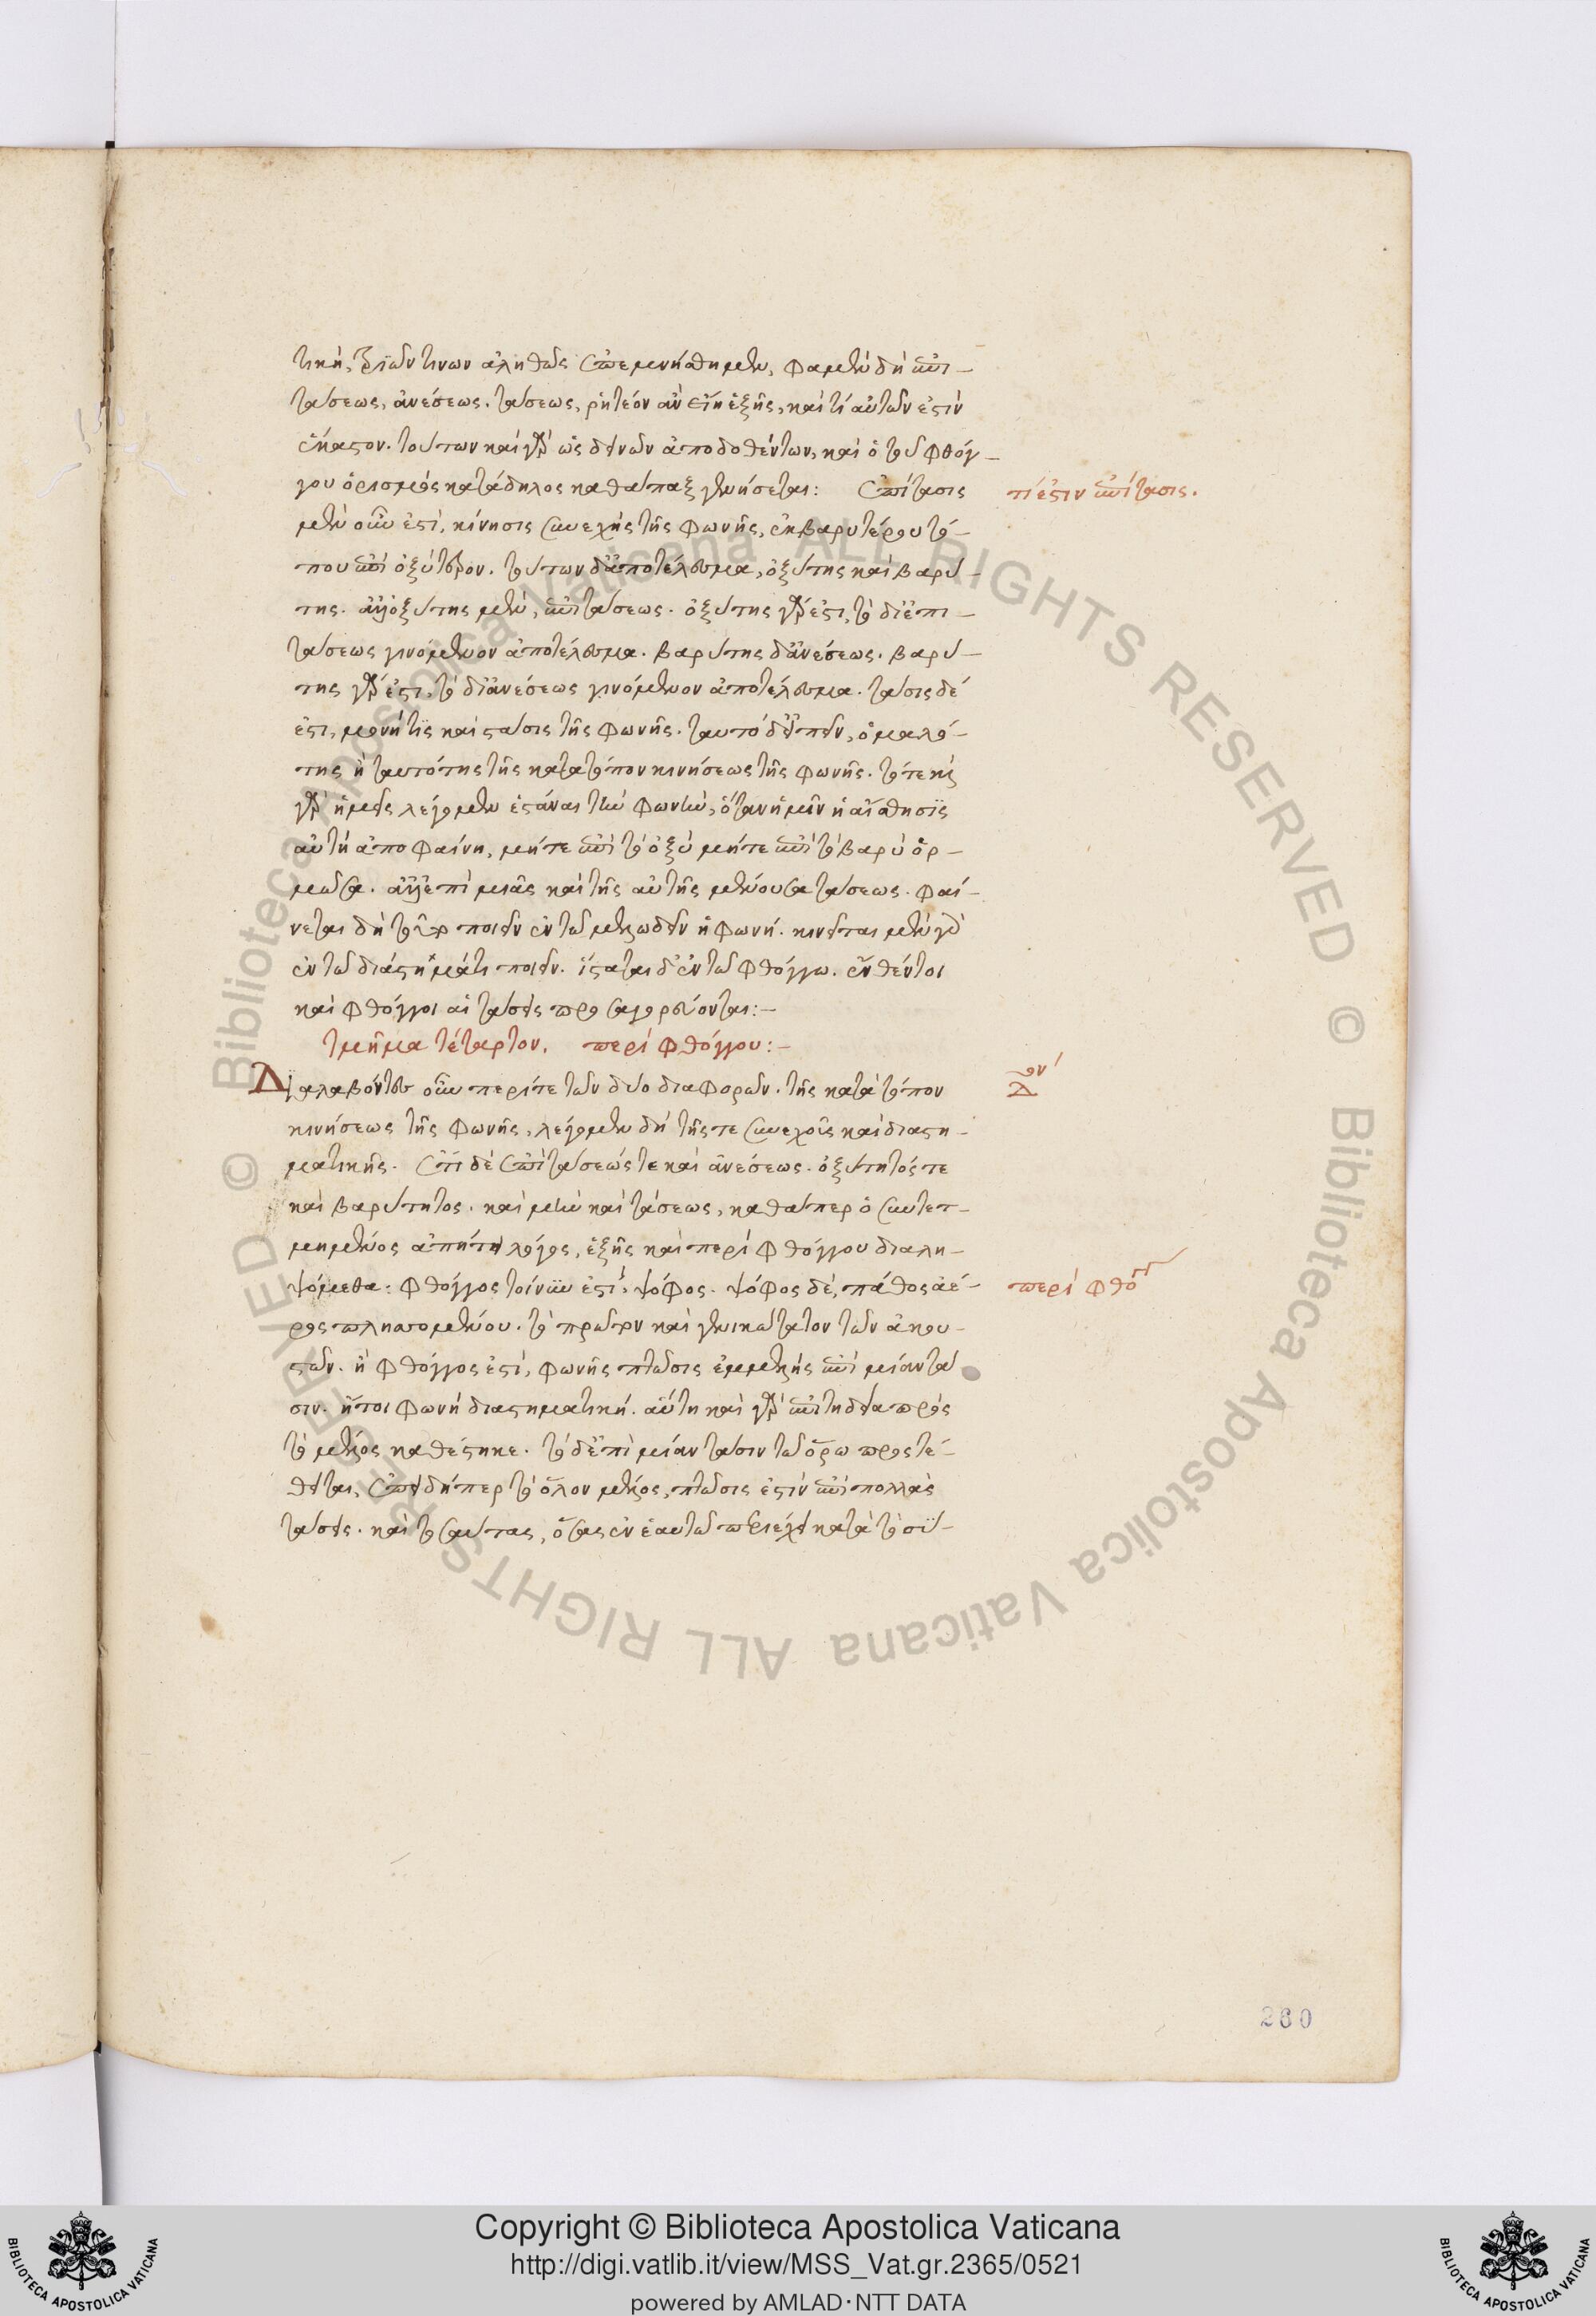 τική, τριῶν τινων ἀληθῶς ἐπεμνήσθημεν, φαμὲν δὴ ἐπι-
τάσεως, ἀνέσεως, τάσεως, ῥητέον ἂν εἴη ἑξῆς, καὶ τί αὐτῶν ἐστὶν
ἕκαστον. τούτων καὶ γὰρ ὡς δεινῶν ἀποδοθέντων, καὶ ὁ τοῦ φθόγ-
γου ὁρισμὸς κατάδηλος καθάπαξ γενήσεται: Ἐπίτασις
τί ἐστιν ἐπίτασις.
μὲν οὖν ἐστὶ, κίνησις συνεχὴς τῆς φωνῆς, ἐκ βαρυτέρου τό-
που ἐπὶ ὀξύτερον. τούτων δ' ἀποτέλεσμα, ὀξύτης καὶ βαρύ-
της. ἀλλ' ὀξύτης μὲν, ἐπιτάσεως. ὀξύτης γάρ ἐστι, τὸ δι' ἐπι-
τάσεως γινόμενον ἀποτέλεσμα. βαρύτης δ' ἀνέσεως. βαρύ-
της γάρ ἐστι, τὸ δι' ἀνέσεως γινόμενον ἀποτέλεσμα. τάσις δέ
ἐστι, μονή τις καὶ στάσις τῆς φωνῆς. ταυτὸ δ' εἰπεῖν, ὁμαλό-
της ἢ ταυτότης τῆς κατὰ τόπον κινήσεως τῆς φωνῆς. τότε καὶ
γὰρ ἡμεῖς λέγομεν ἑστάναι τὴν φωνήν, ὅταν ἡμῖν ἡ αἴσθησις
αὐτὴ ἀποφαίνη, μήτε ἐπὶ τὸ ὀξὺ μήτε ἐπὶ τὸ βαρὺ ὁρ-
μῶσα. ἀλλ' ἐπὶ μιᾶς καὶ τῆς αὐτῆς μένουσα τάσεως. φαί-
νεται δὴ ποιεῖν ἐν τῶ μελωδεῖν ἡ φωνή. κινεῖται μὲν γὰρ
ἐν τῶ διαστήματι ποιεῖν. ἵσταται δ' ἐν τῶ φθόγγω. ἔνθέντοι
καὶ φθόγγοι αἱ τάσεις προσαγορεύονται:-
τμῆμα τέταρτον. περὶ φθόγγου:-
Διαλαβόντες οὖν περί τε τῶν δύο διαφορῶν. τῆς κατὰ τόπον
Δον
κινήσεως τῆς φωνῆς, λέγομεν δὴ τῆς τε συνεχοῦς καὶ διαστη-
ματικῆς. ἔτι δὲ ἐπιτάσεώς τε καὶ ἀνέσεως. ὀξύτητός τε
καὶ βαρύτητος. καὶ μὴν καὶ τάσεως, καθάπερ ὁ συντετ-
μημένος ἀπήτει λόγος, ἑξῆς καὶ περὶ φθόγγου διαλη-
ψόμεθα: φθόγγος τοίνυν ἐστὶ, ψόφος. ψόφος δὲ, πάθος ἀέ-
περὶ φθόγγ
ρος πλησσομένου. τὸ πρῶτον καὶ γενικώτατον τῶν ἀκου-
στῶν. ἢ φθόγγος ἐστὶ, φωνῆς πτῶσις ἐμμελὴς ἐπὶ μίαν τά-
σιν. ἤτοι φωνὴ διαστηματική. αὕτη καὶ γὰρ ἐπιτηδεία πρὸς
τὸ μέλος καθέστηκε. τὸ δ' ἐπὶ μίαν τάσιν τῶ ὅρω προστέ-
θειται, ἐπειδήπερ τὸ ὅλον μέλος, πτῶσις ἐστὶν ἐπὶ πολλὰς
τάσεις. καὶ τοσαύτας, ὅσας ἐν ἑαυτῶ περιέχει κατὰ τὸ σύ-
260
Copyright © Biblioteca Apostolica Vaticana
http://digi.vatlib.it/view/MSS_Vat.gr.2365/0521
powered by AMLAD·NTT DATA